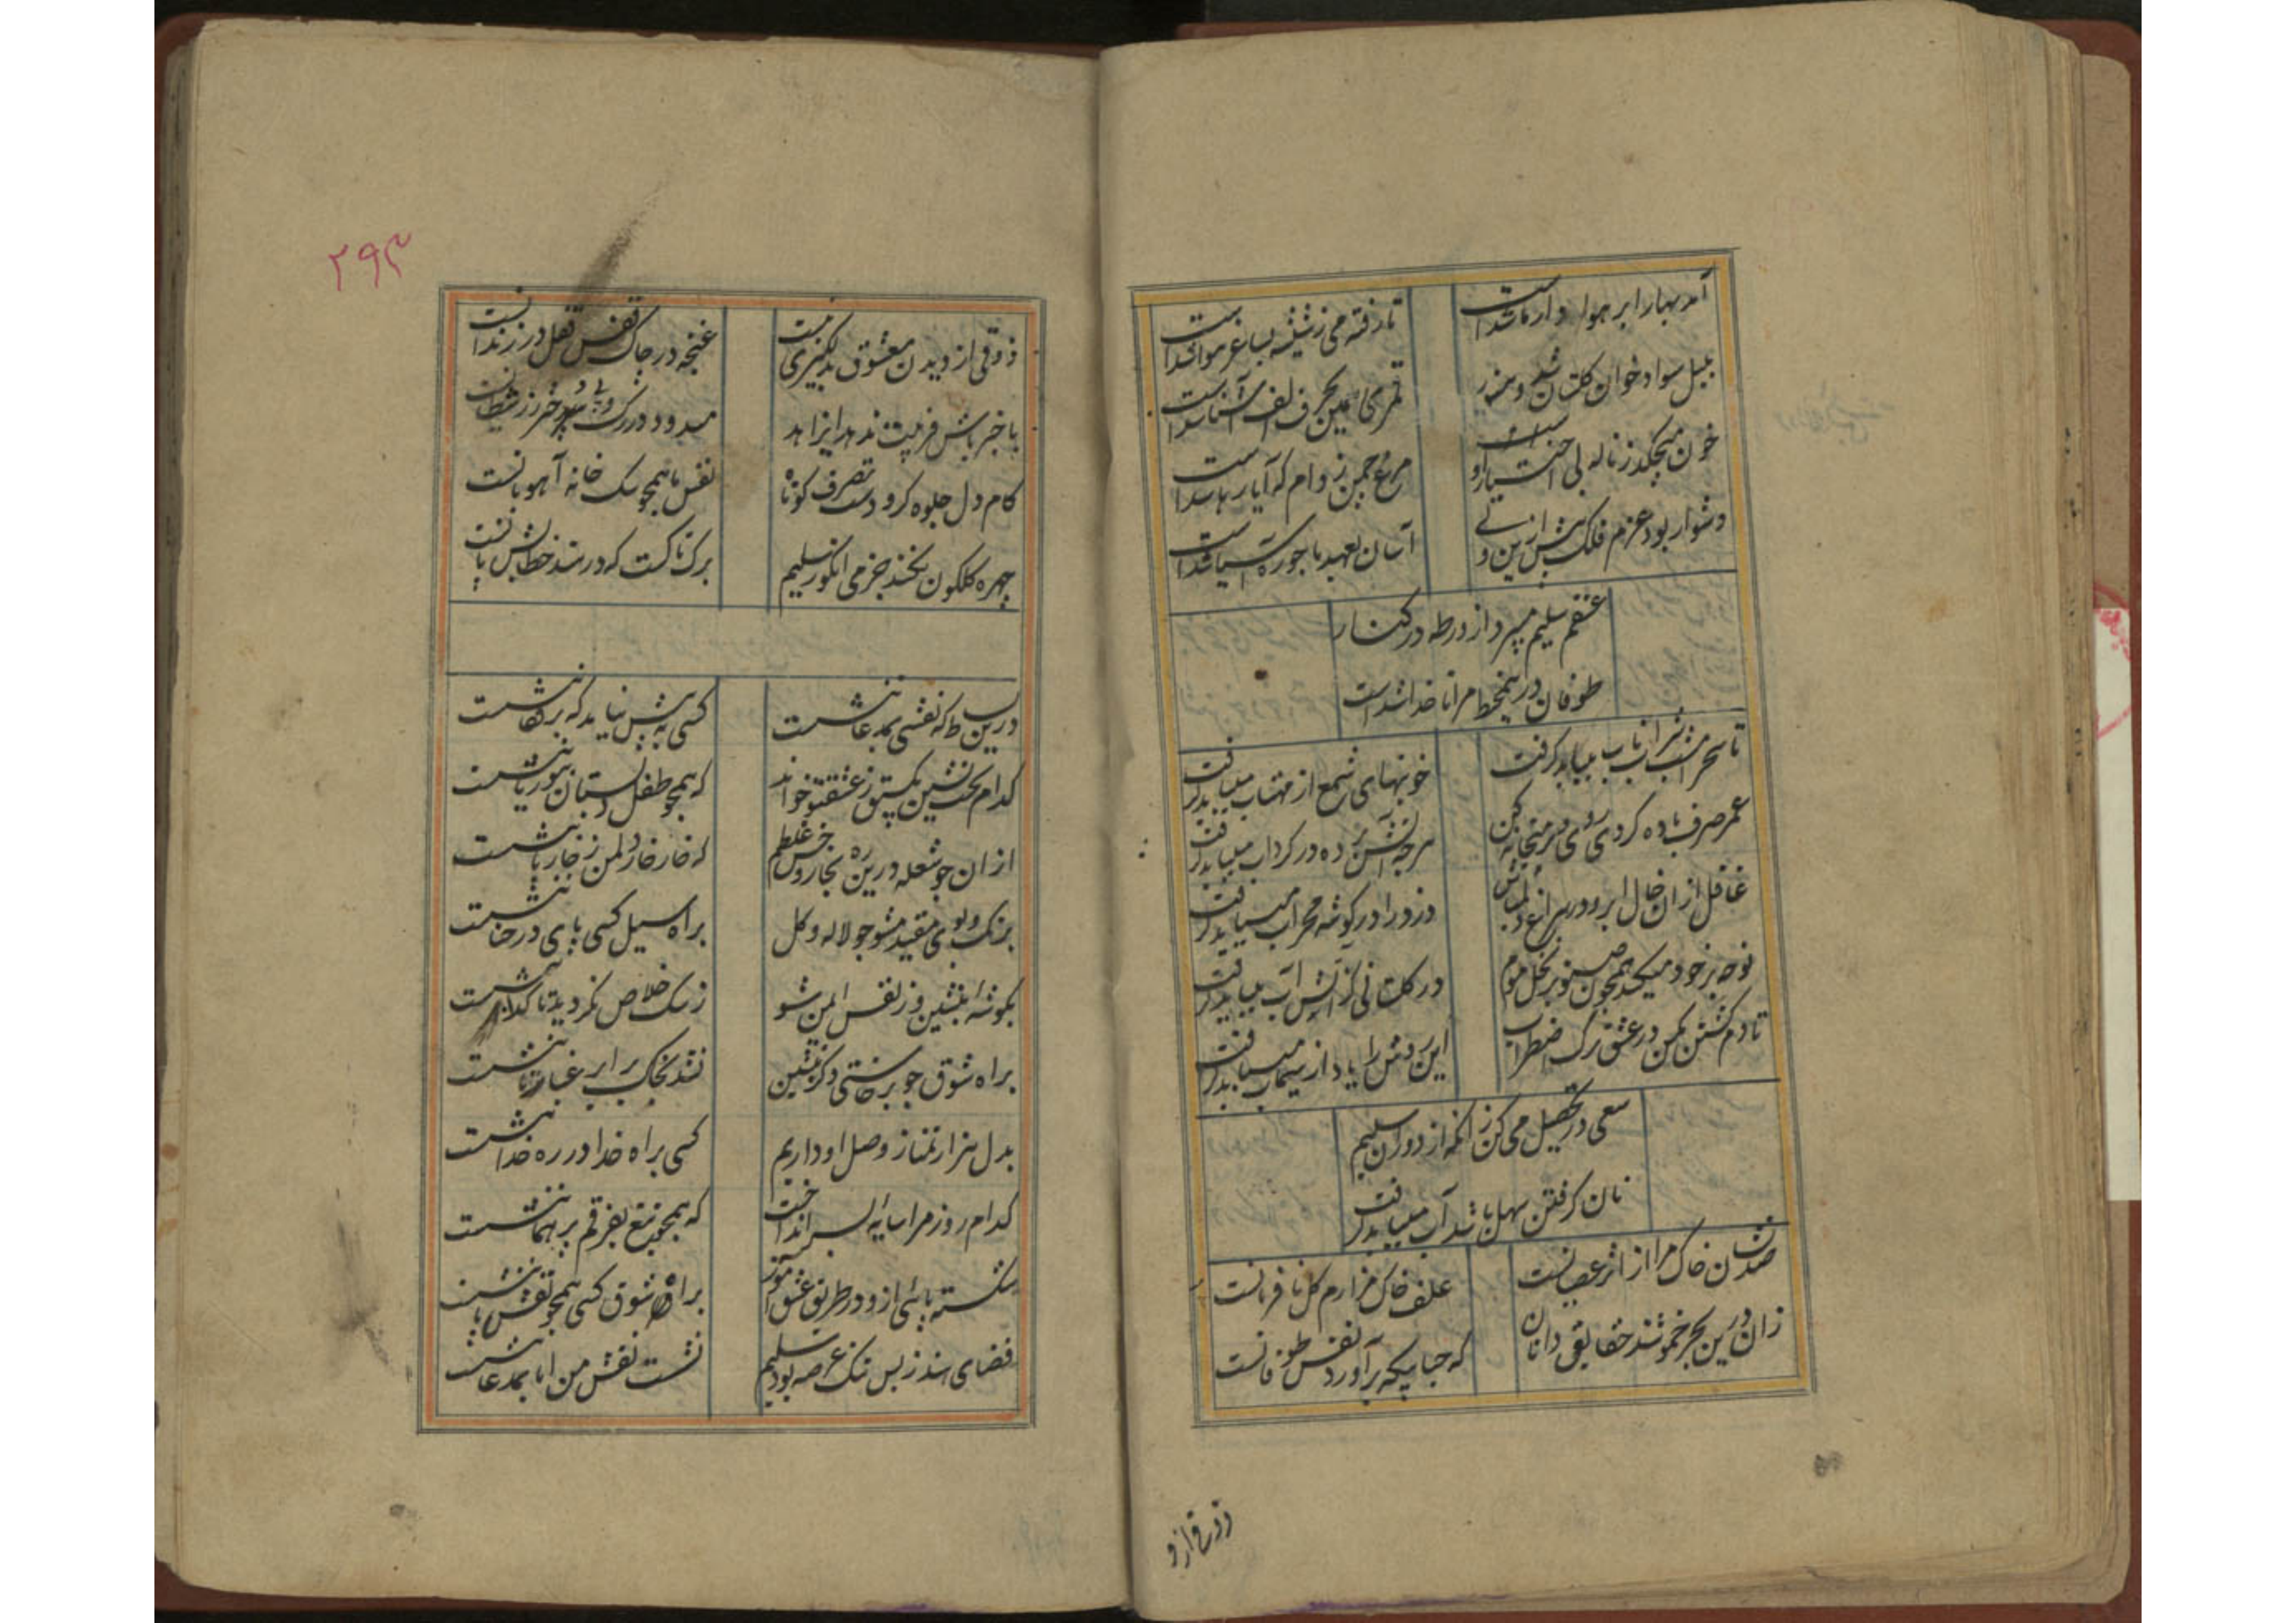 آمد بهار ابر هوا دار ما شداست
تا رفته می ز شیشه بساغر هوا شداست
بلبل سواد خوان گلستان شد و هنوز
قمری همین بحرف الف آشنا شداست
خون میچکد ز ناله بی اختیار او
مرغ چمن ز دام که آیا رها شداست
دشوار بود عزم فلک پیش ازین ولی
آسان بعهد ما جو ره آسیا شداست
عشقم سلیم میبرد از ورطه در کنار
طوفان درین محیط مرا ناخدا شداست
تا سحر امشب شراب ناب میباید گرفت
خونبهای شمع از مهتاب میباید گرفت
عمر صرف باده کردی روی در میخانه کن
هرچه آتش برده در گرداب میباید گرفت
غافل از آن خال ابرو در سراغ دل مباش
دزد را در گوشه محراب میباید گرفت
نوحه بر خود میکند همچون صنوبر نخل موم
در گلستانی کز آتش آب میباید گرفت
تا دم کشتن مکن در عشق ترک اضطراب
این روش را یاد از سیماب میباید گرفت
سعی در تحصیل می کن زانکه از دوران سلیم
نان گرفتن سهل باشد آب میباید گرفت
خاک مرا از اثر عصیانست
علف خاک مزارم گل نافرمانست
زان درین بحر خموشند حقایق دانان
که حبابیکه برآورد نفس طوفانست
ذوقی از و
۲۹۳
ذوقی از دیدن معشوق به بیخبریست
غنچه در چاک قفس قفل در زندانست
با خبر باش فریبت ندهد ای زاهد
میدود در رگ و پی دختر رز شیطانست
کام دل جلوه گر و دست تصرف کوتاه
نفس ما همچو سگ خانه آهوبانست
چهره گلگون نکند جز می انگور سلیم
برگ تاکست که در سند خطش پانست
درین بساط که نقشی بمدعا ننشست
کسی به پیش نیامد که بر قفا ننشست
کدام تخت نشین یکسبق ز عشق تو خواند
که همچو طفل دبستان ببوریا ننشست
از آن چو شعله درین ره بخار و خس غلطم
که خار خار دلم ز خار پا ننشست
برنگ و بوی مقید مشو چو لاله و گل
براه سیل کسی پای در حنا ننشست
بگوشه ای بنشین و ز نفس ایمن شو
ز سگ خلاص نگردید تا گدا ننشست
براه شوق چو برخاستی دگر منشین
نشد بخاک برابر غبار تا ننشست
بدل هزار تمنا ز وصل او داریم
کسی براه خدا در ره خدا ننشست
کدام روز مرا سایه ای بسر انداخت
که همچو تیغ بفرقم پر هما ننشست
شکسته پائی ازو در طریق عشق آموز
براه شوق کسی همچو نقش پا ننشست
فضای هند ز بس تنگ عرصه بود سلیم
نشست نقش من اما بمدعا ننشست